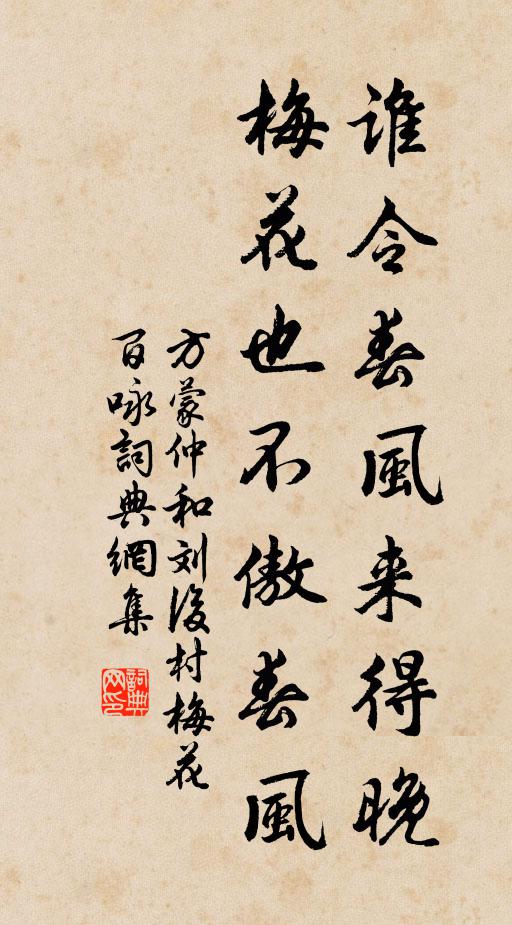 谁令春風来得晚
梅花也不傲春風
方蒙仲和刘後村梅花
百咏詞典網集
詞典网印